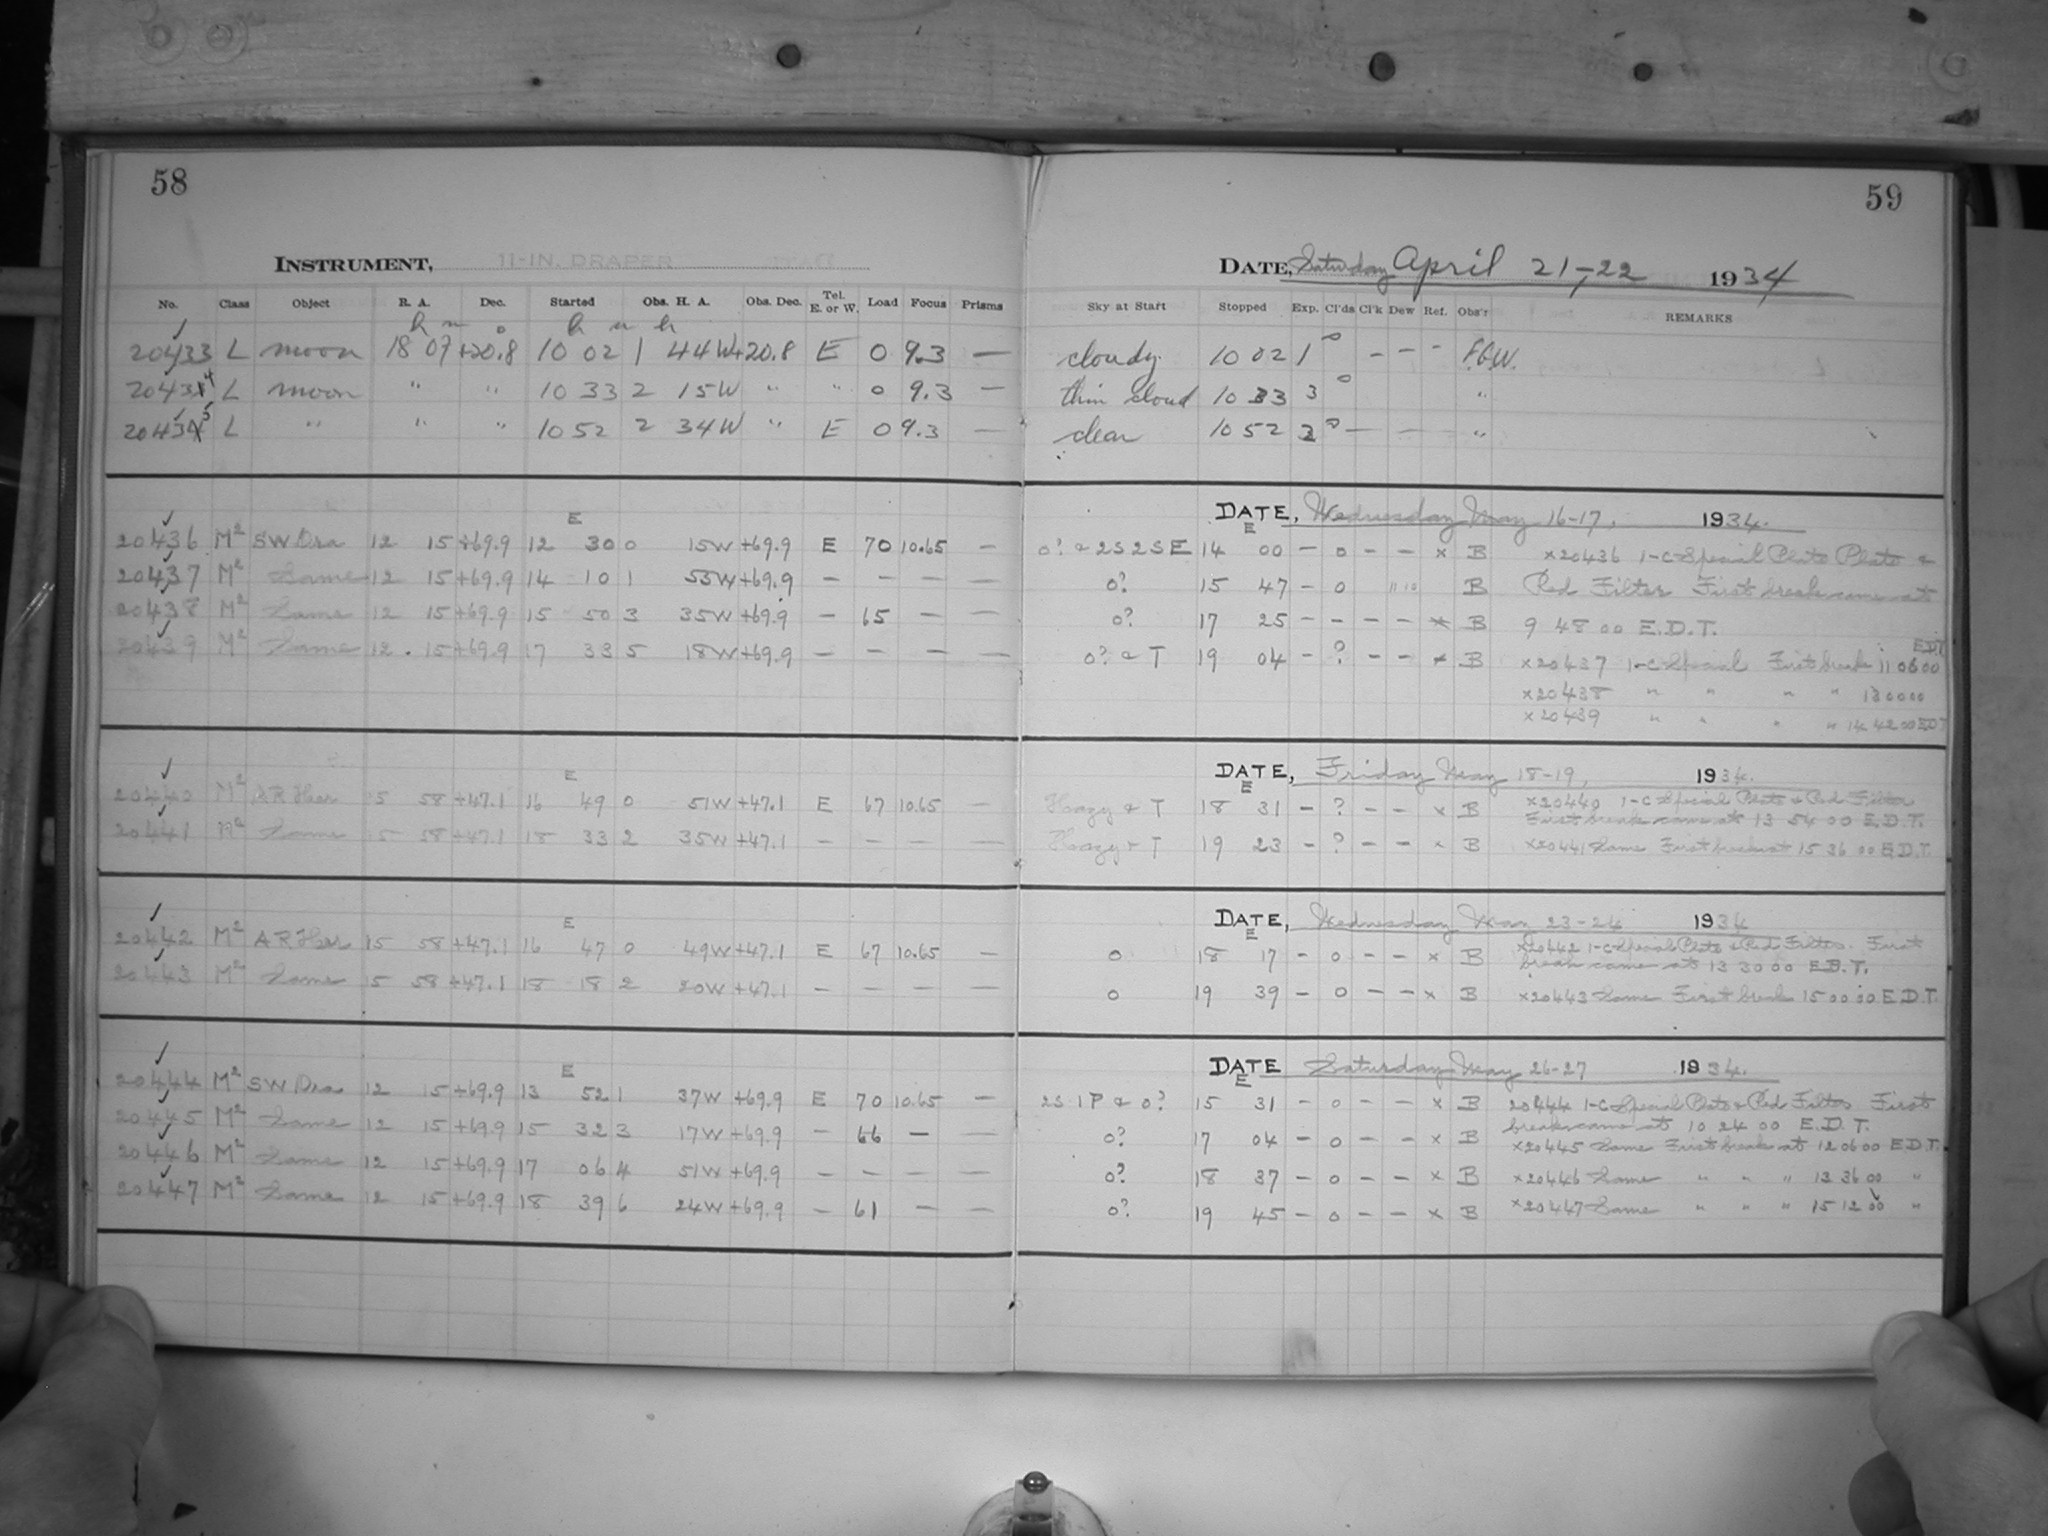 58
59
INSTRUMENT, 11-IN. DRAPER
DATE, Saturday April 21-22 1934
No. Class Object R. A. Dec. Started Obs. H. A. Obs. Dec. Tel. E. or W. Load Focus Prisms Sky at Start Stopped Exp. Cl'ds Cl'k Dew Ref. Obs'r REMARKS
h m o h m h
20433 L moon 18 07 +20.8 10 02 1 44W +20.8 E 0 9.3 — cloudy 10 02 1 0 - - - F.G.W.
20434 L moon " " " 10 33 2 15W " " 0 9.3 — thin cloud 10 33 3 0 "
20435 L " " " 10 52 2 34W " E 0 9.3 — clear 10 52 2 0 — — "
DATE, Wednesday May 16-17, 1934.
E E
20436 M2 SW Dra 12 15 +69.9 12 30 0 15W +69.9 E 70 10.65 — 0? & 2S 2SE 14 00 - 0 - - x B x20436 1-C Special Plate Plate &
20437 M2 Same 12 15 +69.9 14 10 1 55W +69.9 — — — — 0? 15 47 - 0 " " B Red Filter First break came at
20438 M2 Same 12 15 +69.9 15 50 3 35W +69.9 — 65 — — 0? 17 25 - - - - x B 9 48 00 E.D.T.
20439 M2 Same 12 15 +69.9 17 33 5 18W +69.9 — — — — 0? & T 19 04 - ? - - x B x20437 1-C Special First break 11 06 00 EDT
x20438 " " " " 13 00 00
x20439 " " " " 14 42 00 EDT
DATE, Friday May 18-19, 1934.
E E
20440 M2 AR Her 15 58 +47.1 16 49 0 51W +47.1 E 67 10.65 — Hazy & T 18 31 - ? - - x B x20440 1-C Special Plate & Red Filter
First break came at 13 54 00 E.D.T.
20441 M2 Same 15 58 +47.1 18 33 2 35W +47.1 — — — — Hazy & T 19 23 - ? - - x B x20441 Same First break at 15 36 00 E.D.T.
DATE, Wednesday May 23-24 1934
E E
20442 M2 AR Her 15 58 +47.1 16 47 0 49W +47.1 E 67 10.65 — 0 18 17 - 0 - - x B x20442 1-C Special Plate & Red Filter. First
break came at 13 30 00 E.D.T.
20443 M2 Same 15 58 +47.1 18 18 2 20W +47.1 — — — — 0 19 39 - 0 - - x B x20443 Same First break 15 00 00 E.D.T.
DATE Saturday May 26-27 1934.
E E
20444 M2 SW Dra 12 15 +69.9 13 52 1 37W +69.9 E 70 10.65 — 2S 1P & 0? 15 31 - 0 - - x B 20444 1-C Special Plate & Red Filter First
break came at 10 24 00 E.D.T.
20445 M2 Same 12 15 +69.9 15 32 3 17W +69.9 — 66 — — 0? 17 04 - 0 - - x B x20445 Same First break at 12 06 00 E.D.T.
20446 M2 Same 12 15 +69.9 17 06 4 51W +69.9 — — — — 0? 18 37 - 0 - - x B x20446 Same " " " 13 36 00 "
20447 M2 Same 12 15 +69.9 18 39 6 24W +69.9 — 61 — — 0? 19 45 - 0 - - x B x20447 Same " " " 15 12 00 "